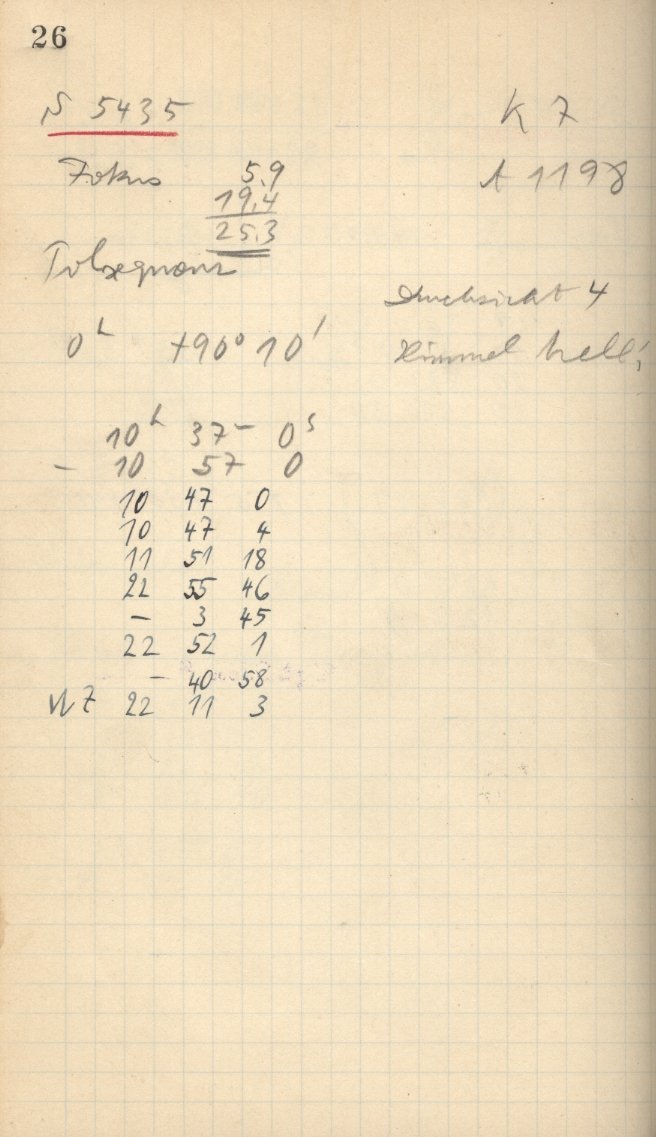 26
S 5435 K 7
Fokus 5.9 A 1198
19.4
25.3
Polsequenz
Durchsicht 4
0h +90° 10' Himmel hell,
10h 37m 0s
– 10 57 0
10 47 0
10 47 4
11 51 18
22 55 46
– 3 45
22 52 1
– 40 58
WZ 22 11 3